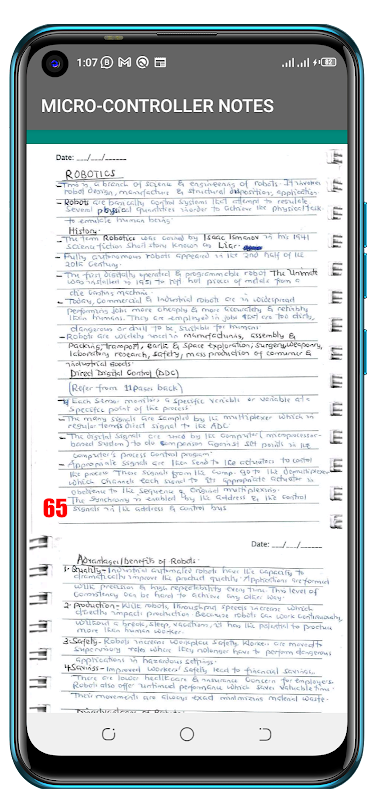 1:07
82
MICRO-CONTROLLER NOTES
Date: __/__/____
ROBOTICS
- This is a branch of science & engineering of robots. It involves
robot design, manufacture & structural disposition, application.
- Robots are basically control systems that attempt to regulate
several physical quantities in order to achieve the physical task
to emulate human being.
History:
- The term Robotics was coined by Isaac in his 1941
science fiction short story known as Liar
- Fully autonomous robots appeared in the 2nd half of the
20th Century.
- The first digitally operated & programmable robot The Unimate
was installed in 1961 to lift hot pieces of metals from a
die casting machine
- Today, Commercial & industrial robots are in widespread
performing jobs more cheaply & more accurately & reliably
than humans. They are employed in jobs that are too dirty,
dangerous or dull to be suitable for humans.
- Robots are widely used in manufacturing, assembly &
packing, transport, earth & space exploration, surgery, weaponry,
laboratory research, safety, mass production of consumer &
industrial goods.
Direct Digital Control (DDC)
(Refer from 11 pages back)
Each sensor monitors a specific variable or variable at a
specific point of the process
- The many signals are sampled by the multiplexer which in
regular terms direct signal to the ADC
- The digital signals are used by the computer/microprocessor-
based system to do comparison against set points in the
computer's process control program.
- Appropriate signals are the send to the actuators to control
the process These signals from the comp. go to the demultiplexer
which channels each signal to its appropriate actuator in
obedience to the sequence & original multiplexing.
- The synchrony is enabled by the address & the control
65
signals in the address & control bus
Date: __/__/____
Advantages/benefits of Robots:
1. Quality - Industrial automated robots have the capacity to
dramatically improve the product quality. Applications performed
with precision & high repeatability every time. This level of
consistency can be hard to achieve any other way.
2. Production - With robots, throughput speeds increase which
directly impacts production Because robots can work continuously,
without a break, sleep, vacations, it has the potential to produce
more than human worker.
3. Safety - Robots increase workplace safety. Workers are moved to
supervisory roles when they nolonger have to perform dangerous
applications in hazardous settings.
4. Savings - Improved workers' safety lead to financial savings.
There are lower healthcare & insurance concern for employers.
Robots also offer untimed performance which saves valuable time.
Their movements are always exact minimizing material waste.